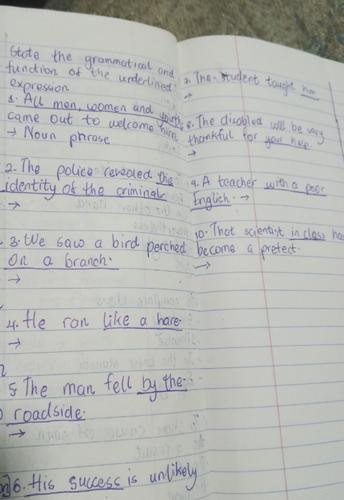 State the grammatical and
function of the underlined
expression
1. All men, women and youths
came out to welcome him
→ Noun phrase
2. The police revealed the
identity of the criminal
→
3. We saw a bird perched
on a branch.
→
4. He ran like a hare.
→
5. The man fell by the
roadside.
→
6. His success is unlikely
7. The student taught him
→
8. The disabled will be very
thankful for your help.
→
9. A teacher with a poor
English. →
10. That scientist in class has
become a prefect.
→